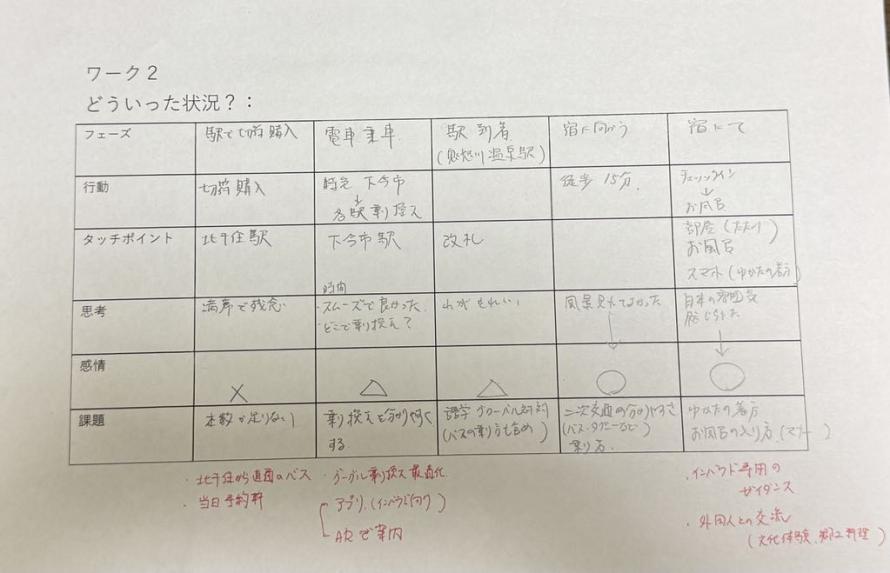 ワーク２
どういった状況？：
フェーズ 駅で切符購入 電車乗車 駅到着 宿に向かう 宿にて
(鬼怒川温泉駅)
行動 切符購入 下今市 徒歩15分. チェックイン
↓ ↓
乗り換え お風呂
タッチポイント 北千住駅 下今市駅 改札 部屋(たたみ)
お風呂
スマホ(ゆかたの着方)
時間
思考 満席で残念 ・スムーズで良かった. 風景見れてよかった 日本の雰囲気
・どこで乗り換え? 感じられた
感情 × △ △ ○ ○
課題 本数が足りない 乗り換えを分かりやすく 語学 グローバル対応 二次交通の分かりやすさ ゆかたの着方
する (バスの乗り方も含め) (バス・タクシーなど) お風呂の入り方.(マナー)
乗り方.
・北千住から直通のバス ・グーグル乗り換え最適化 ・インバウンド専用の
・当日予約枠 アプリ.(インバウンド向け) ガイダンス
ARで案内 ・外国人との交流
(文化体験、郷土料理)